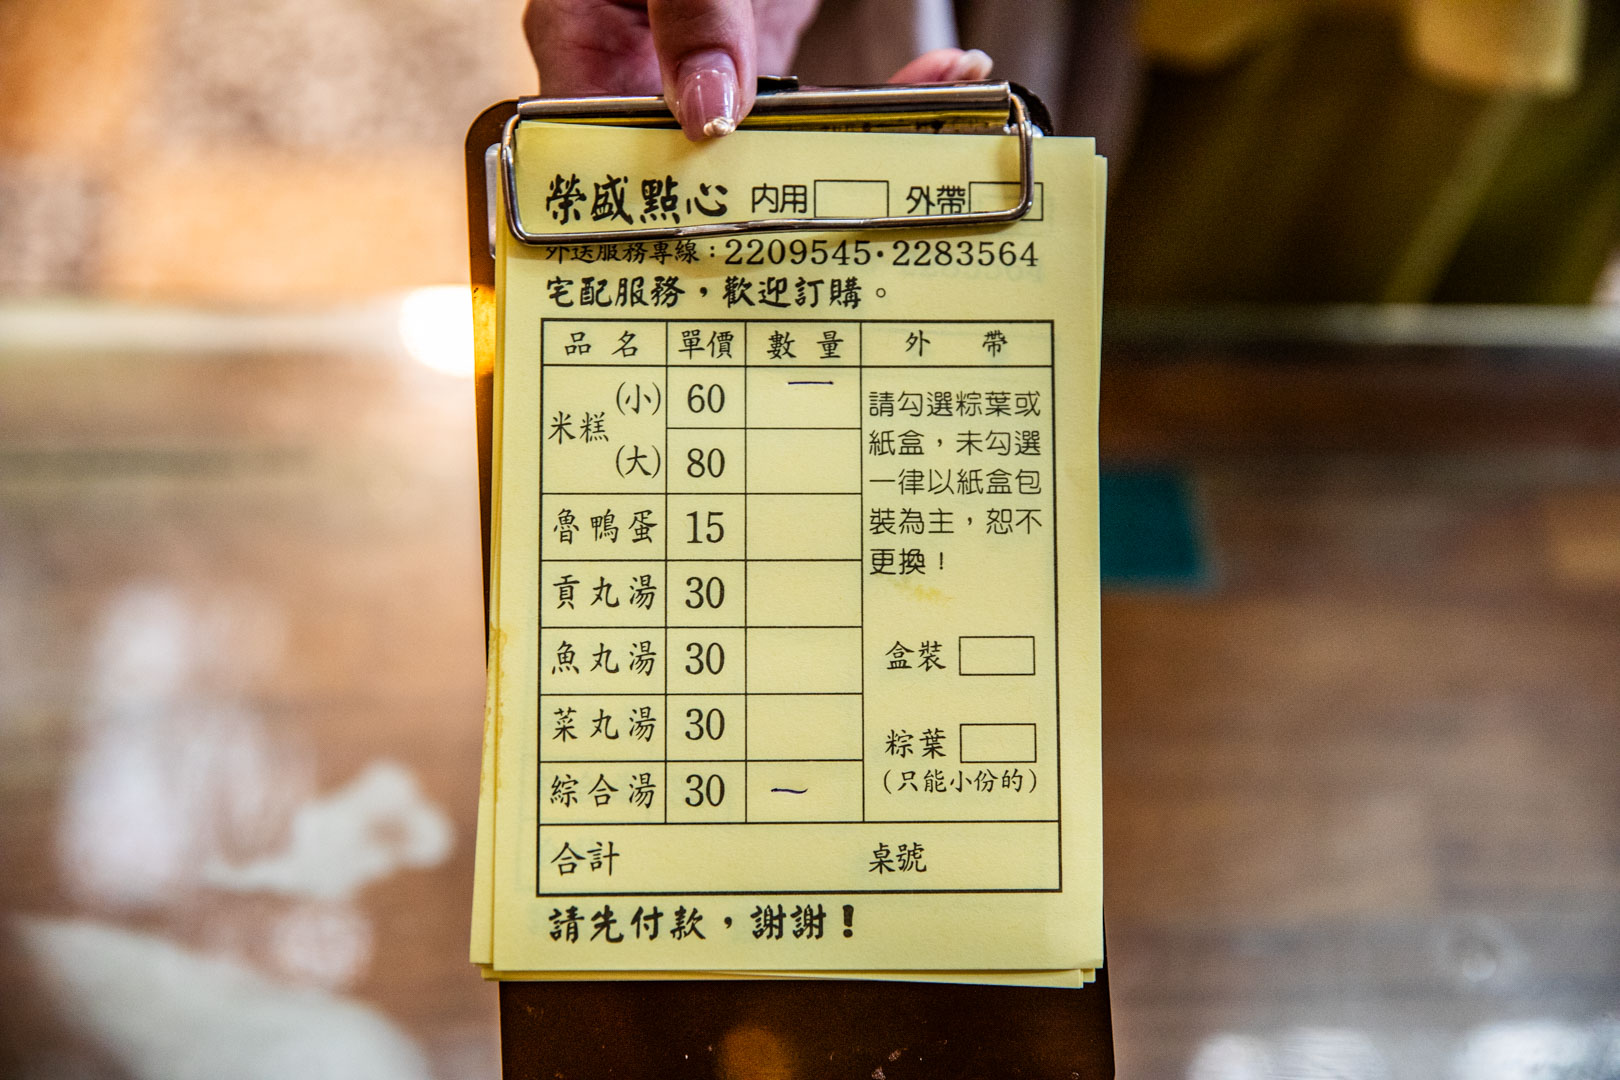 榮盛點心 內用 外帶
外送服務專線：2209545·2283564
宅配服務，歡迎訂購。
品名 單價 數量 外帶
米糕 (小) 60 一
(大) 80
魯鴨蛋 15
貢丸湯 30
魚丸湯 30
菜丸湯 30
綜合湯 30 一
請勾選粽葉或
紙盒，未勾選
一律以紙盒包
裝為主，恕不
更換！
盒裝
粽葉
(只能小份的)
合計 桌號
請先付款，謝謝！